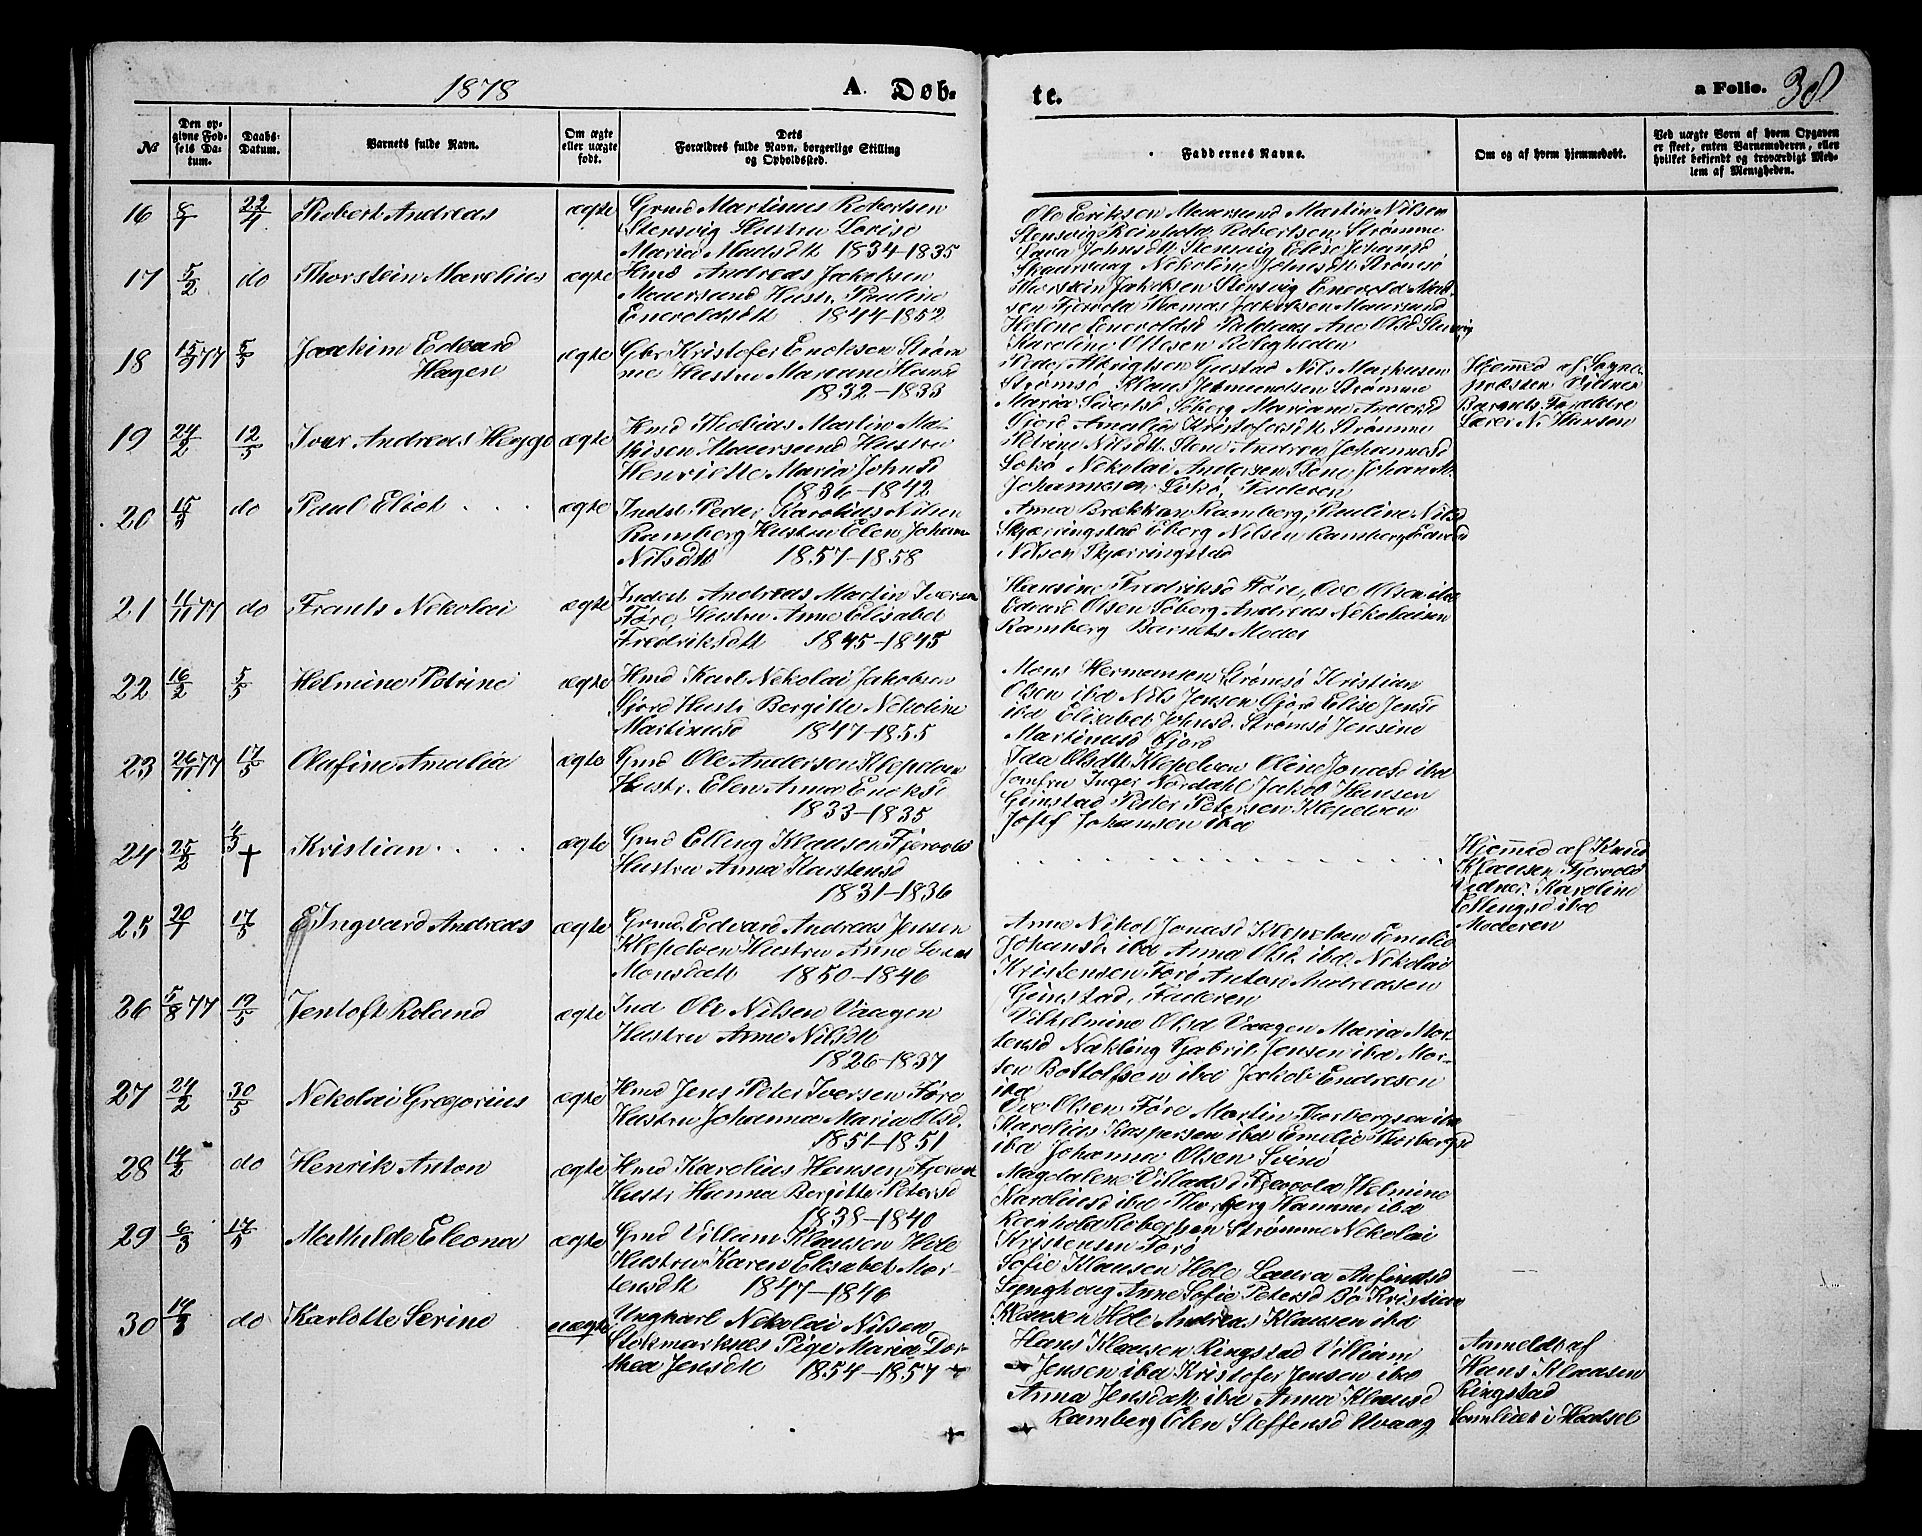 1878
A. Døb-
te.
a Folio. 38
No
Den opgivne Fødsels Datum.
Daabs-Datum.
Barnets fulde Navn.
Om ægte eller uægte født.
Dets Forældres fulde Navn, borgerlige Stilling og Opholdssted.
Faddernes Navne.
Om og af hvem hjemmedøbt.
Ved uægte Børn af hvem Opgaven er skeet, enten Barnemoderen, eller hvilket bekjendt og troværdigt Medlem af Menigheden.
16 8/1 22/4 Robert Andreas ægte Grmd Martinus Robertsen
Stensvig Hustru Lovise
Maria Madsdtt 1834-1835
Ole Eriksen Maursund Martin Nilsen
Stensvig Reinhold Robertsen Strømme
Lava Johnsdtt Stensvig Elise Johansd
Nekoline Johnsdtt Strømsø
17 5/2 do Thorstein Marelius ægte Hmd Andreas Jakobsen
Maursund Hustr. Pauline
Enevoldsdtt 1844-1852
Thorstein Jakobsen Stensvig Enevold Mad-
sen Fjærvold Thomas Jakobsen Maursund
Helene Enevoldsd Ane Olsd Stensvig
Karoline Ottesen
18 15/9 77 5/5 Joakim Edvard
Hagen
ægte Gbr Kristofer Encksen Strøm
me Hustru Mariane Hansd
1832-1833
Peder Albrigtsen Nils Markusen
Strømsø Klaus Strømme
Maria Sivertsd Søberg Mariane Andersd
Gjord Amalia Kristofersdtt Strømme
Hjemmed af Sogne-
præsten
Barnets Forældre
Lærer N. Hansen
19 24/2 12/5 Ivar Andreas Hegge ægte Hmd Thobias Martin Ma-
thisen Maursund Hustru
Henriette Maria Johnsd
1836-1842
Petrine Nilsdtt Stene Andrea Johannesd
Sokø Nekolai Andersen Stene Johan M.
Johannesen Sokø, Faderen
20 15/3 do Paul Eliot ægte Inds. Peder Karolius Nilsen
Ramberg Hustru Elen Johanna
Nilsdtt 1857-1858
Anna Brækkan Ramberg, Pauline Nilsd
Skjærringstad Eberg Nilsen Ramberg Edvard
Nilsen Skjærringstad
21 11/11 77 do Frants Nekolai ægte Inderst Andreas Martin Iversen
Føre, Hustru Anne Elisabet
Fredriksdtt 1845-1845
Hansine Fredriksd Føre, Ove Olsen ibd
Edvard Olsen Søberg Andreas Nekolaisen
Ramberg Barnets Moder
22 16/2 5/5 Helmine Petrine ægte Hmd Karl Nekolai Jakobsen
Gjord Hustr Bergitte Nekoline
Martinusd 1847-1855
Mons Hermansen Strømsø Kristian
Olsen ibd Nils Jensen Gjord Elise Jensd
ibd Elisabet Johnsd. Strømsø Jensine
Martinusd Gjord
23 26/11 77 17/5 Olufine Amalia ægte Grmd Ole Andersen Klepelven
Hustr. Elen Anna Encksd
1833-1835
Ida Olsdtt Klepelven Oline Jonasd ibd
Jomfru Inger Nordahl Jakob Hansen
Gimstad Peder Petersen Klepelven
Josef Johansen ibd
24 25/2 4/3 † Kristian ægte Grmd Elling Klausen Fjervold
Hustru Anna Karstensd
1831-1836
Hjemmed af Knud
Klausen Fjervold
Vidner: Karoline
Ellingsd ibd
Moderen
25 20/1 17/5 Ingvard Andreas ægte Grmd. Edvard Andreas Jensen
Klepelven Hustru Anne
Monsdatt 1850-1846
Anne Nikol Jonasd Klepelven Emelie
Johansd. ibd Anna Olsd. ibd. Nekolai
Kristensen Førø Anton Andreasen
Gimstad, Faderen
26 5/8 77 12/5 Jentoft Roland ægte Ind Ole Nilsen Vaagen
Hustru Anne Nilsdtt
1826-1837
Vilhelmine Olsd Vaagen Maria Mor-
tensd Nækling Gabril Jensen ibd Mor-
ten Bottolfsen ibd Jakob Endresen
ibd
27 24/2 30/5 Nekolai Gregorius ægte Hmd Jens Peter Iversen Føre
Hustru Johanna Maria Olsd.
1851-1851
Ove Olsen Føre Martin Thorbergsen ibd
Karolius Kaspersen ibd Emelie Thorbergsd
ibd Johanna Olsen Svinø
28 14/2 do Henrik Anton ægte Hmd Karolius Hansen Fjervold
Hustr Hanna Bergitte Petersd
1838-1840
Magdalene Villadsd Fjervold Helmine
Karoliusd ibd Thorberg Hammer ibd
Reenhold Robertsen Strømme Nekolai
Kristensen Førø
29 6/3 17/5 Mathilde Eleona ægte Grmd Villum Klausen Hole
Hustru Karen Elisabet Mor-
tensdtt 1847-1846
Sofie Klausen Hole Laura Anfindsd
Lynghoug Anne Sofie Petersd Bø Kristian
Klausen Hole Andreas Klausen ibd
30 14/3 do Karlotte Serine uægte Ungkarl Nekolai Nilsen
Stokmarknes Pige Maria Dor-
thea Jensdtt 1854-1857
Hans Klausen Ringstad Villiam
Jensen ibd Kristofer Jensen ibd
Anna Jensdatt ibd Anna Klausd
Ramberg Elen Steffensd Alvaag
Anmeldt af
Hans Klaasen
Ringstad
Samleiet i Hadsel